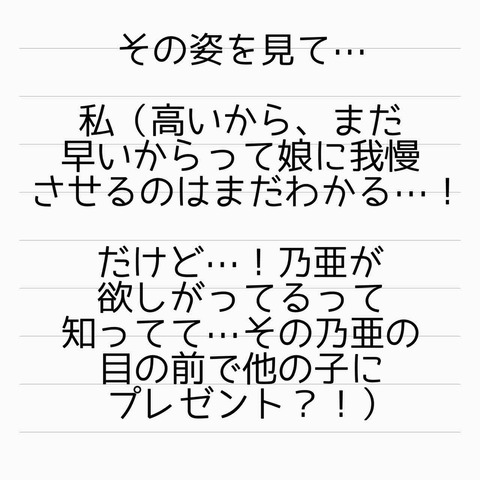 その姿を見て…
私（高いから、まだ
早いからって娘に我慢
させるのはまだわかる…！
だけど…！乃亜が
欲しがってるって
知ってて…その乃亜の
目の前で他の子に
プレゼント？！）